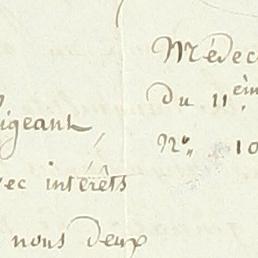 Médec
du 11èm
igeant,
No 10
ec intérêts
nous deux